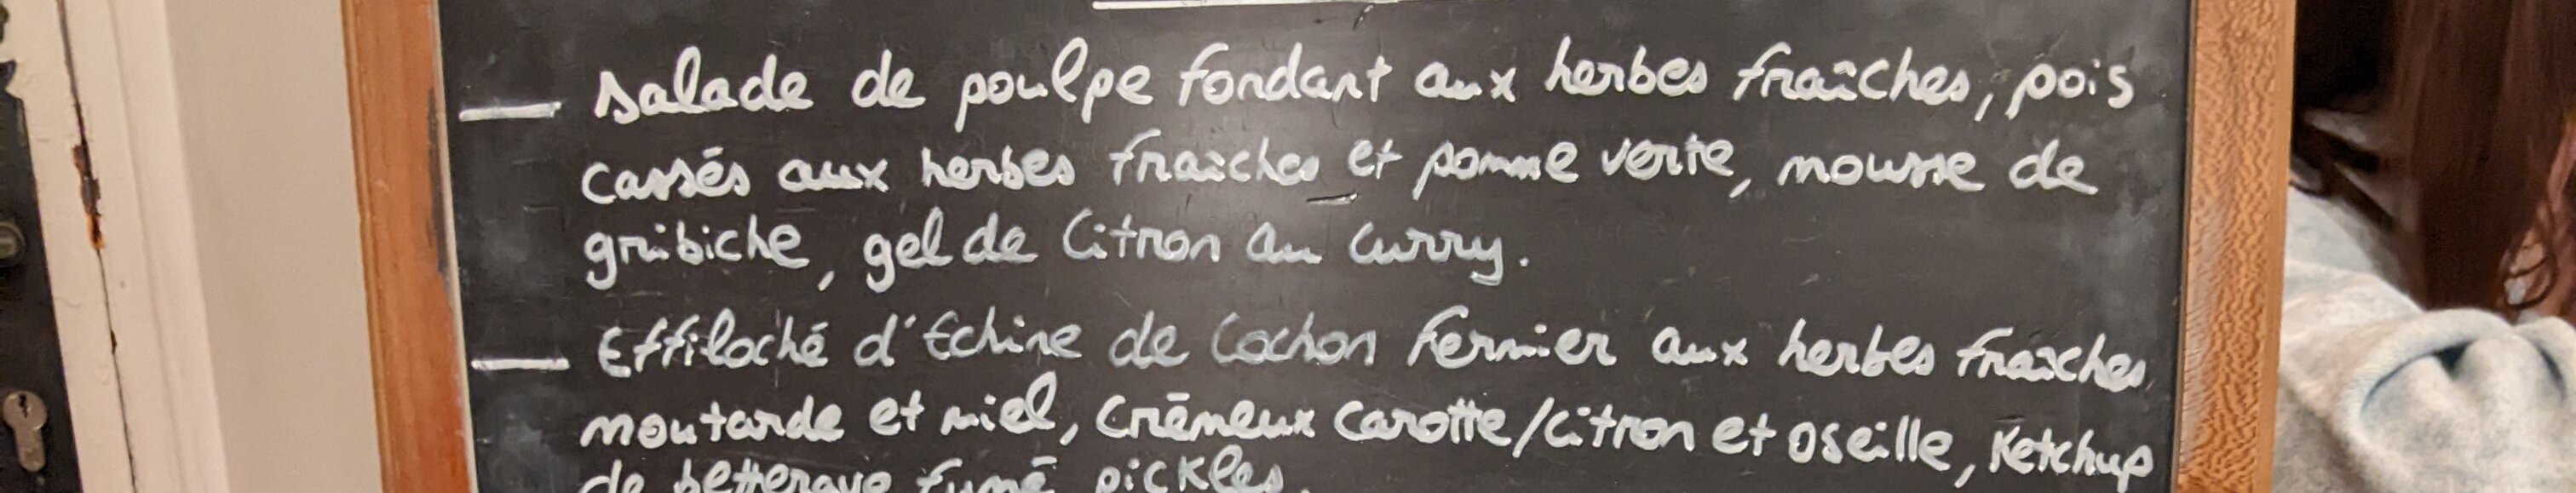 — salade de poulpe fondant aux herbes fraîches, pois
cassés aux herbes fraîches et pomme verte, mousse de
gribiche, gel de Citron au Curry.
— Effiloché d'Echine de Cochon Fermier aux herbes fraîches,
moutarde et miel, Crèmeux Carotte/Citron et Oseille, Ketchup
de betterave fumé, pickles.